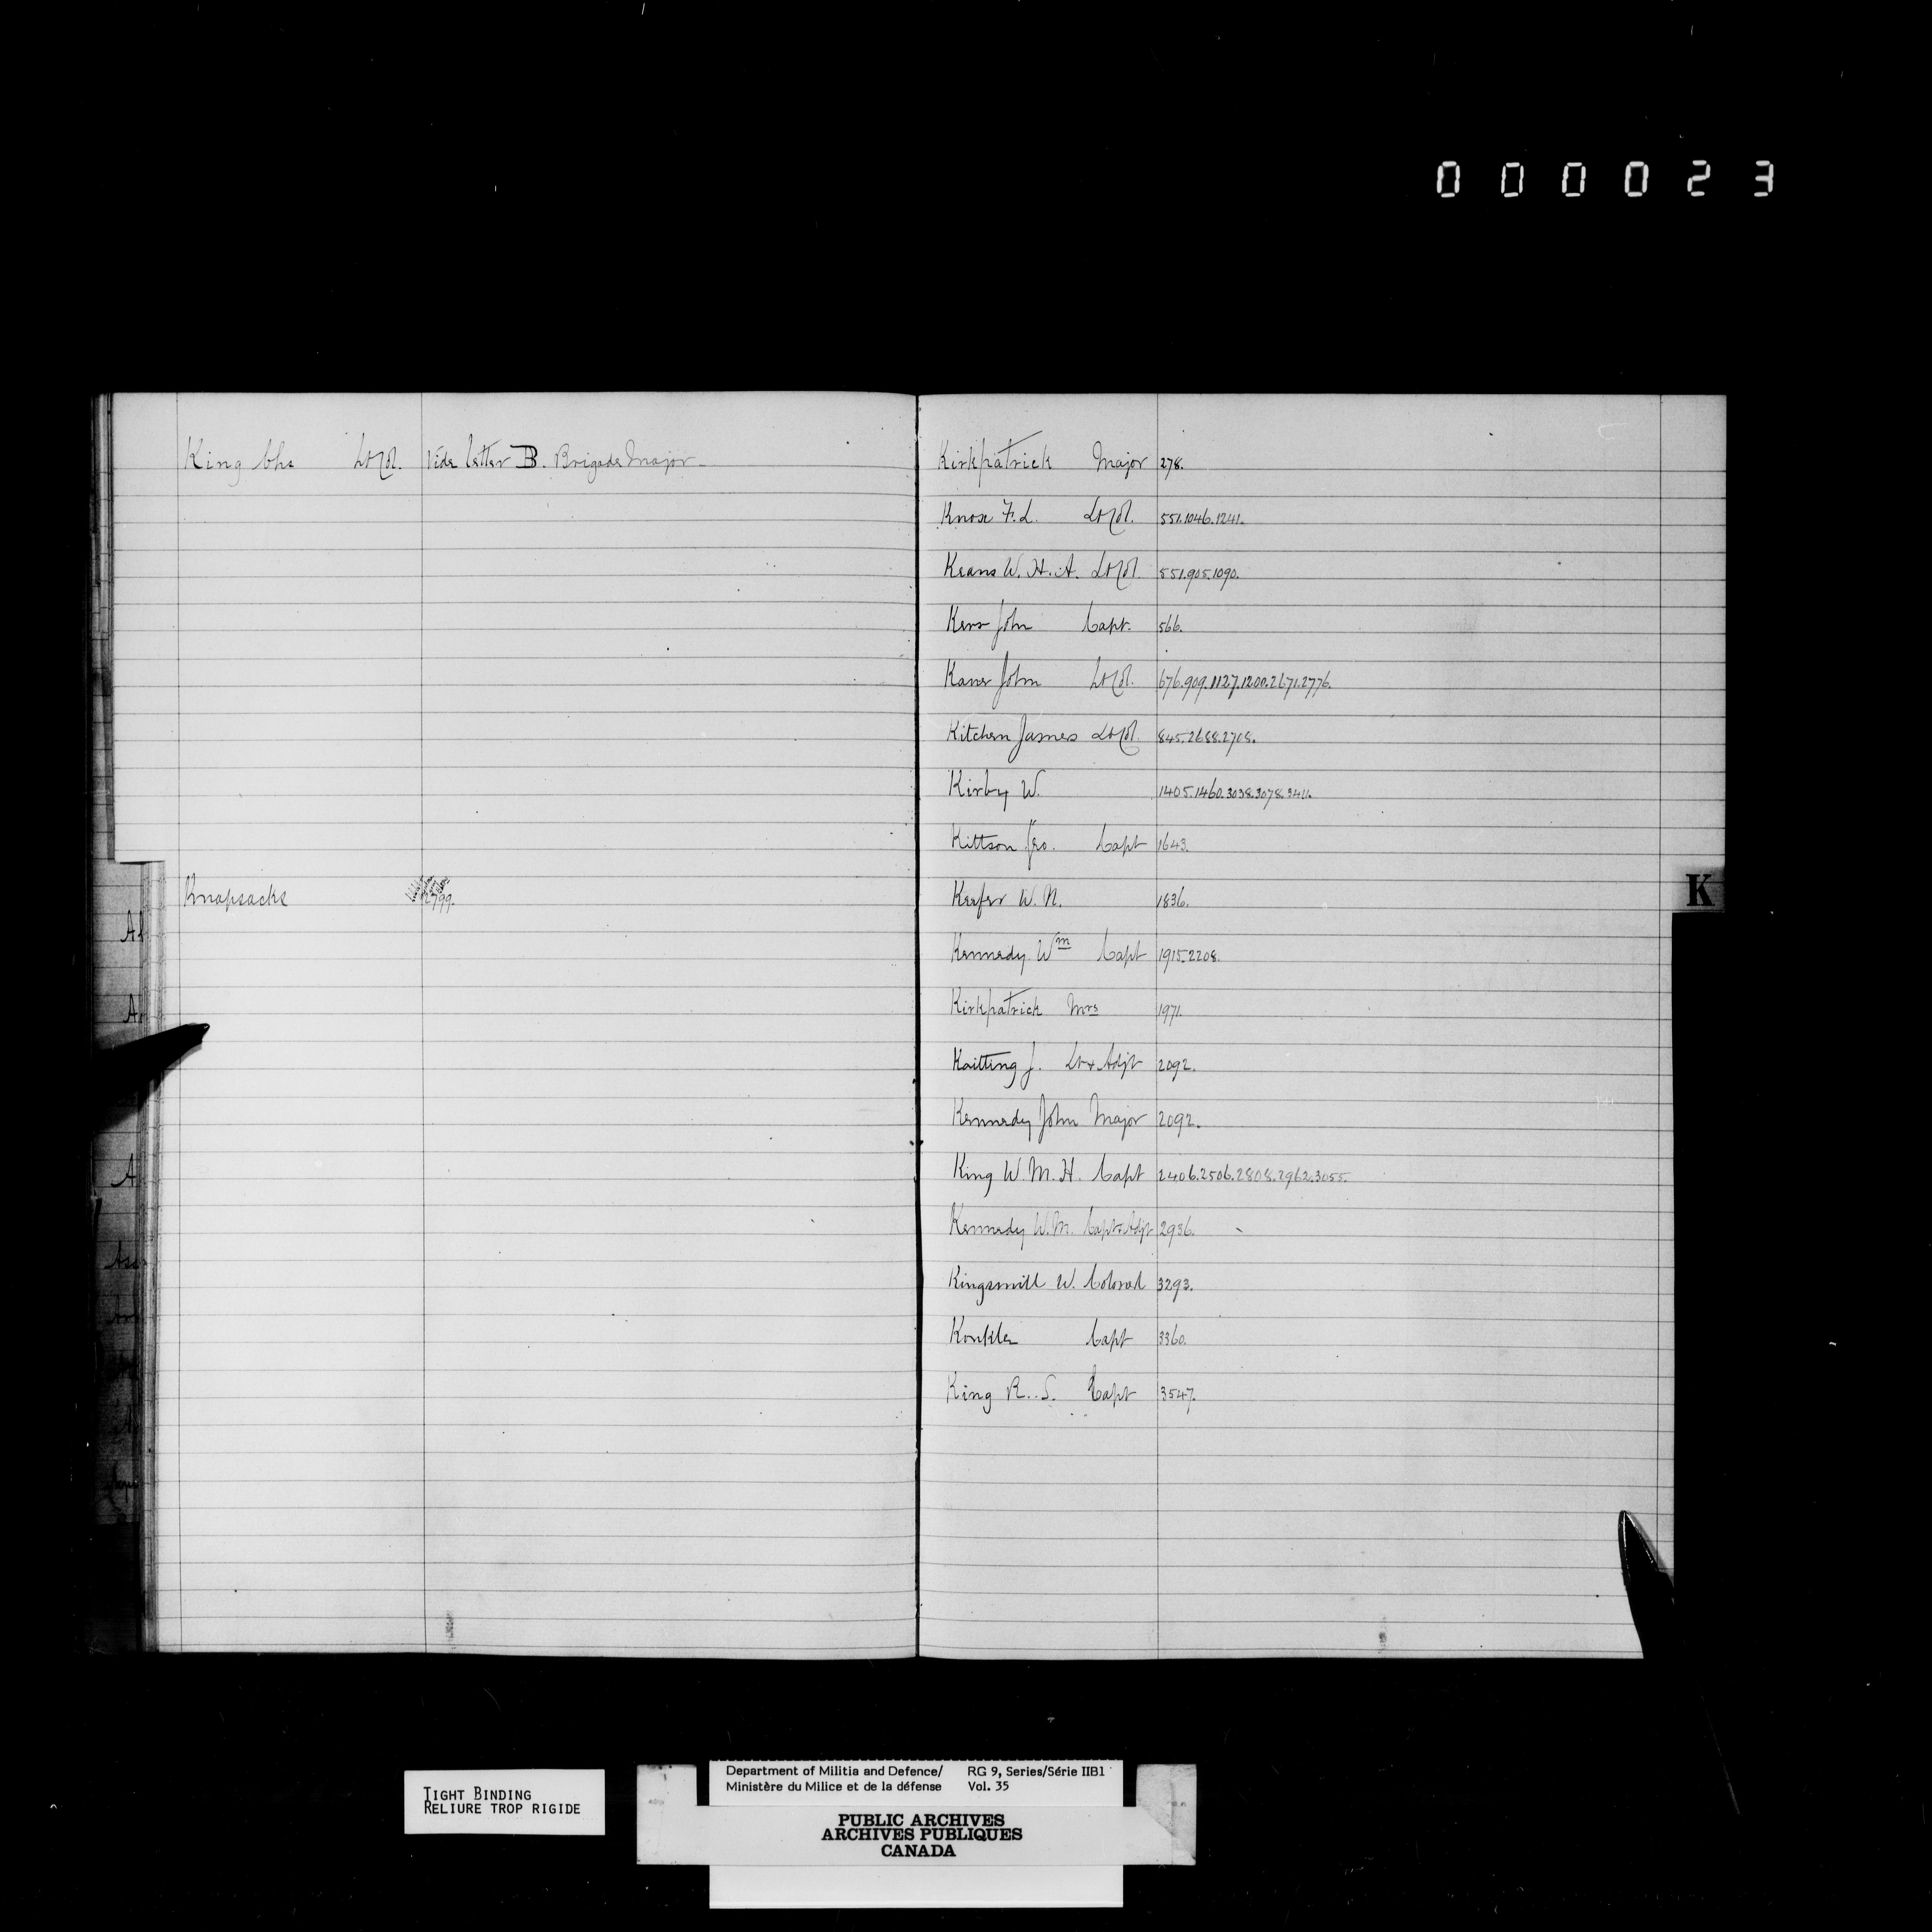 000023
King Chs Lt Col. Vide letter B. Brigade Major
Knapsacks 2799.
Kirkpatrick Major 278.
Knox F. L. Lt Col. 551.1046.1241.
Keans W. H. A. Lt Col. 551.905.1090.
Kerr John Capt. 566.
Kane John Lt Col. 676.909.1127.1200.2671.2776.
Kitchen James Lt Col. 845.2688.2708.
Kirby W. 1405.1460.3038.3078.3411.
Kittson Geo. Capt 1643.
Keefer W. N. 1836.
Kennedy Wm Capt 1915.2208.
Kirkpatrick Mrs 1971.
Kaitting J. Lt & Adjt 2092.
Kennedy John Major 2092.
King W. M. H. Capt 2406.2506.2808.2962.3055.
Kennedy W. M. Capt & Adjt 2936.
K
Kingsmill W. Colonel 3293.
Konkle Capt 3360.
King R. S. Capt 3547.
TIGHT BINDING
RELIURE TROP RIGIDE
Department of Militia and Defence/ RG 9, Series/Série IIB1
Ministère du Milice et de la défense Vol. 35
PUBLIC ARCHIVES
ARCHIVES PUBLIQUES
CANADA